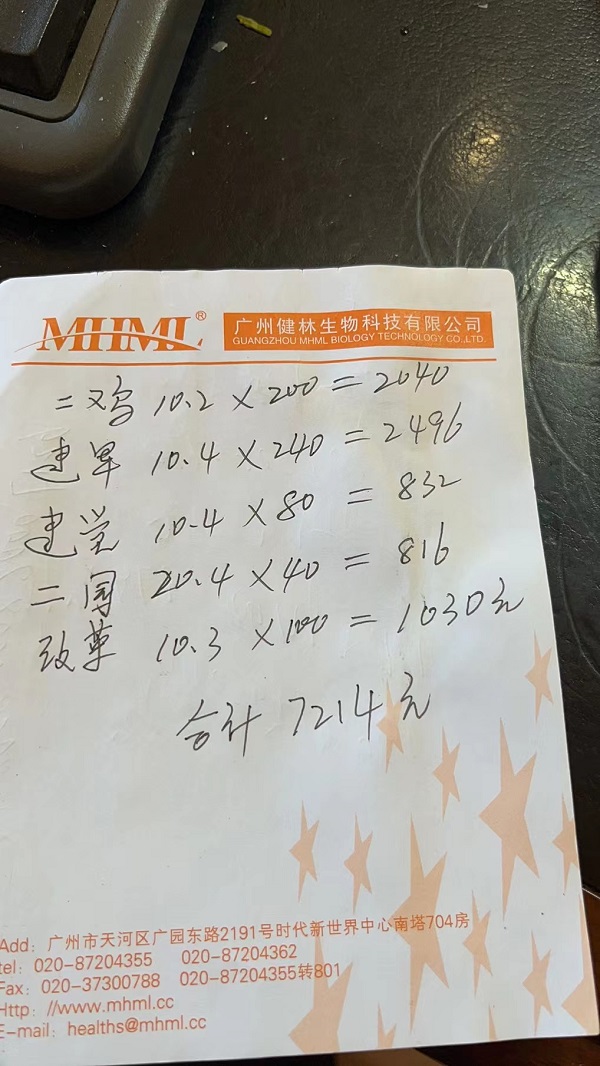 MHML®
广州健林生物科技有限公司
GUANGZHOU MHML BIOLOGY TECHNOLOGY CO.,LTD.
二鸡 10.2 × 200 = 2040
建军 10.4 × 240 = 2496
建堂 10.4 × 80 = 832
二国 20.4 × 40 = 816
改革 10.3 × 100 = 1030元
合计 7214元
Add: 广州市天河区广园东路2191号时代新世界中心南塔704房
tel: 020-87204355 020-87204362
Fax: 020-37300788 020-87204355转801
Http: //www.mhml.cc
E-mail: healths@mhml.cc